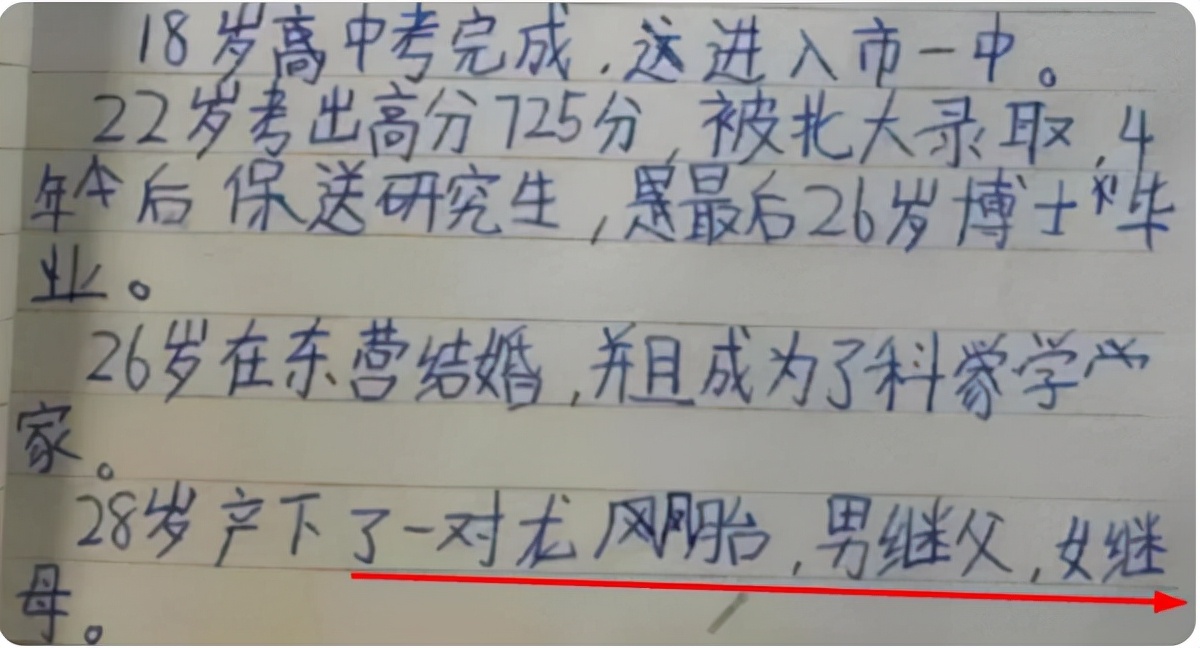 18岁高中考完成,送进入市一中。
22岁考出高分725分,被北大录取,4
年后保送研究生,最后26岁博士毕
业。
26岁在东营结婚,并且成为了科学
家。
28岁产下了一对龙凤胎,男继父,女继
母。